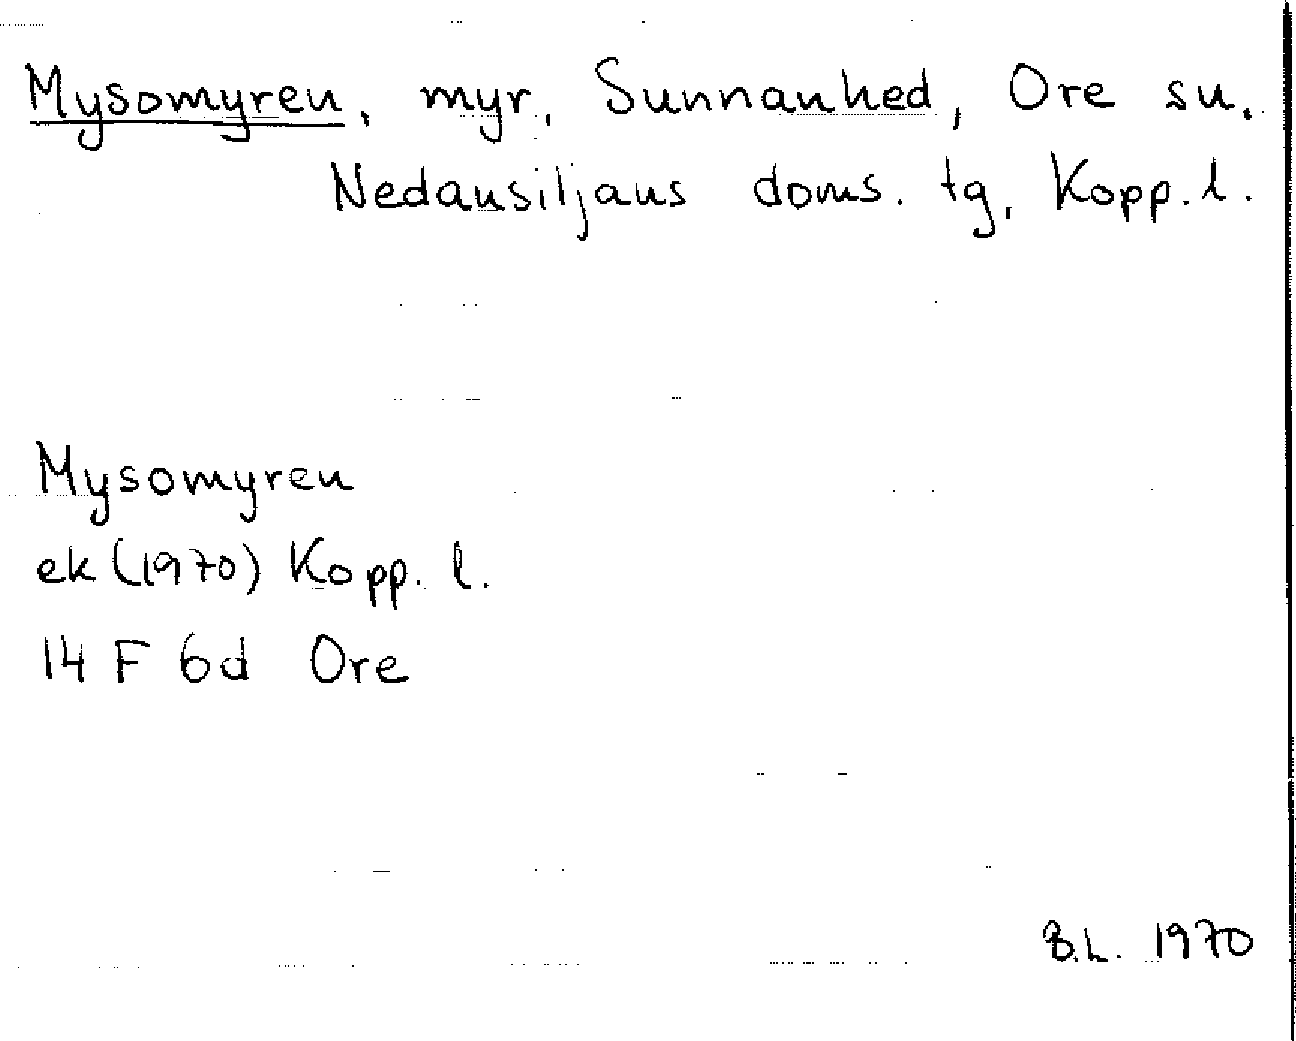 Mysomyren, myr, Sunnanhed, Ore sn.
Nedansiljans doms. tg, Kopp. l.
Mysomyren
ek (1970) Kopp. l.
14 F 6d Ore
B.L. 1970